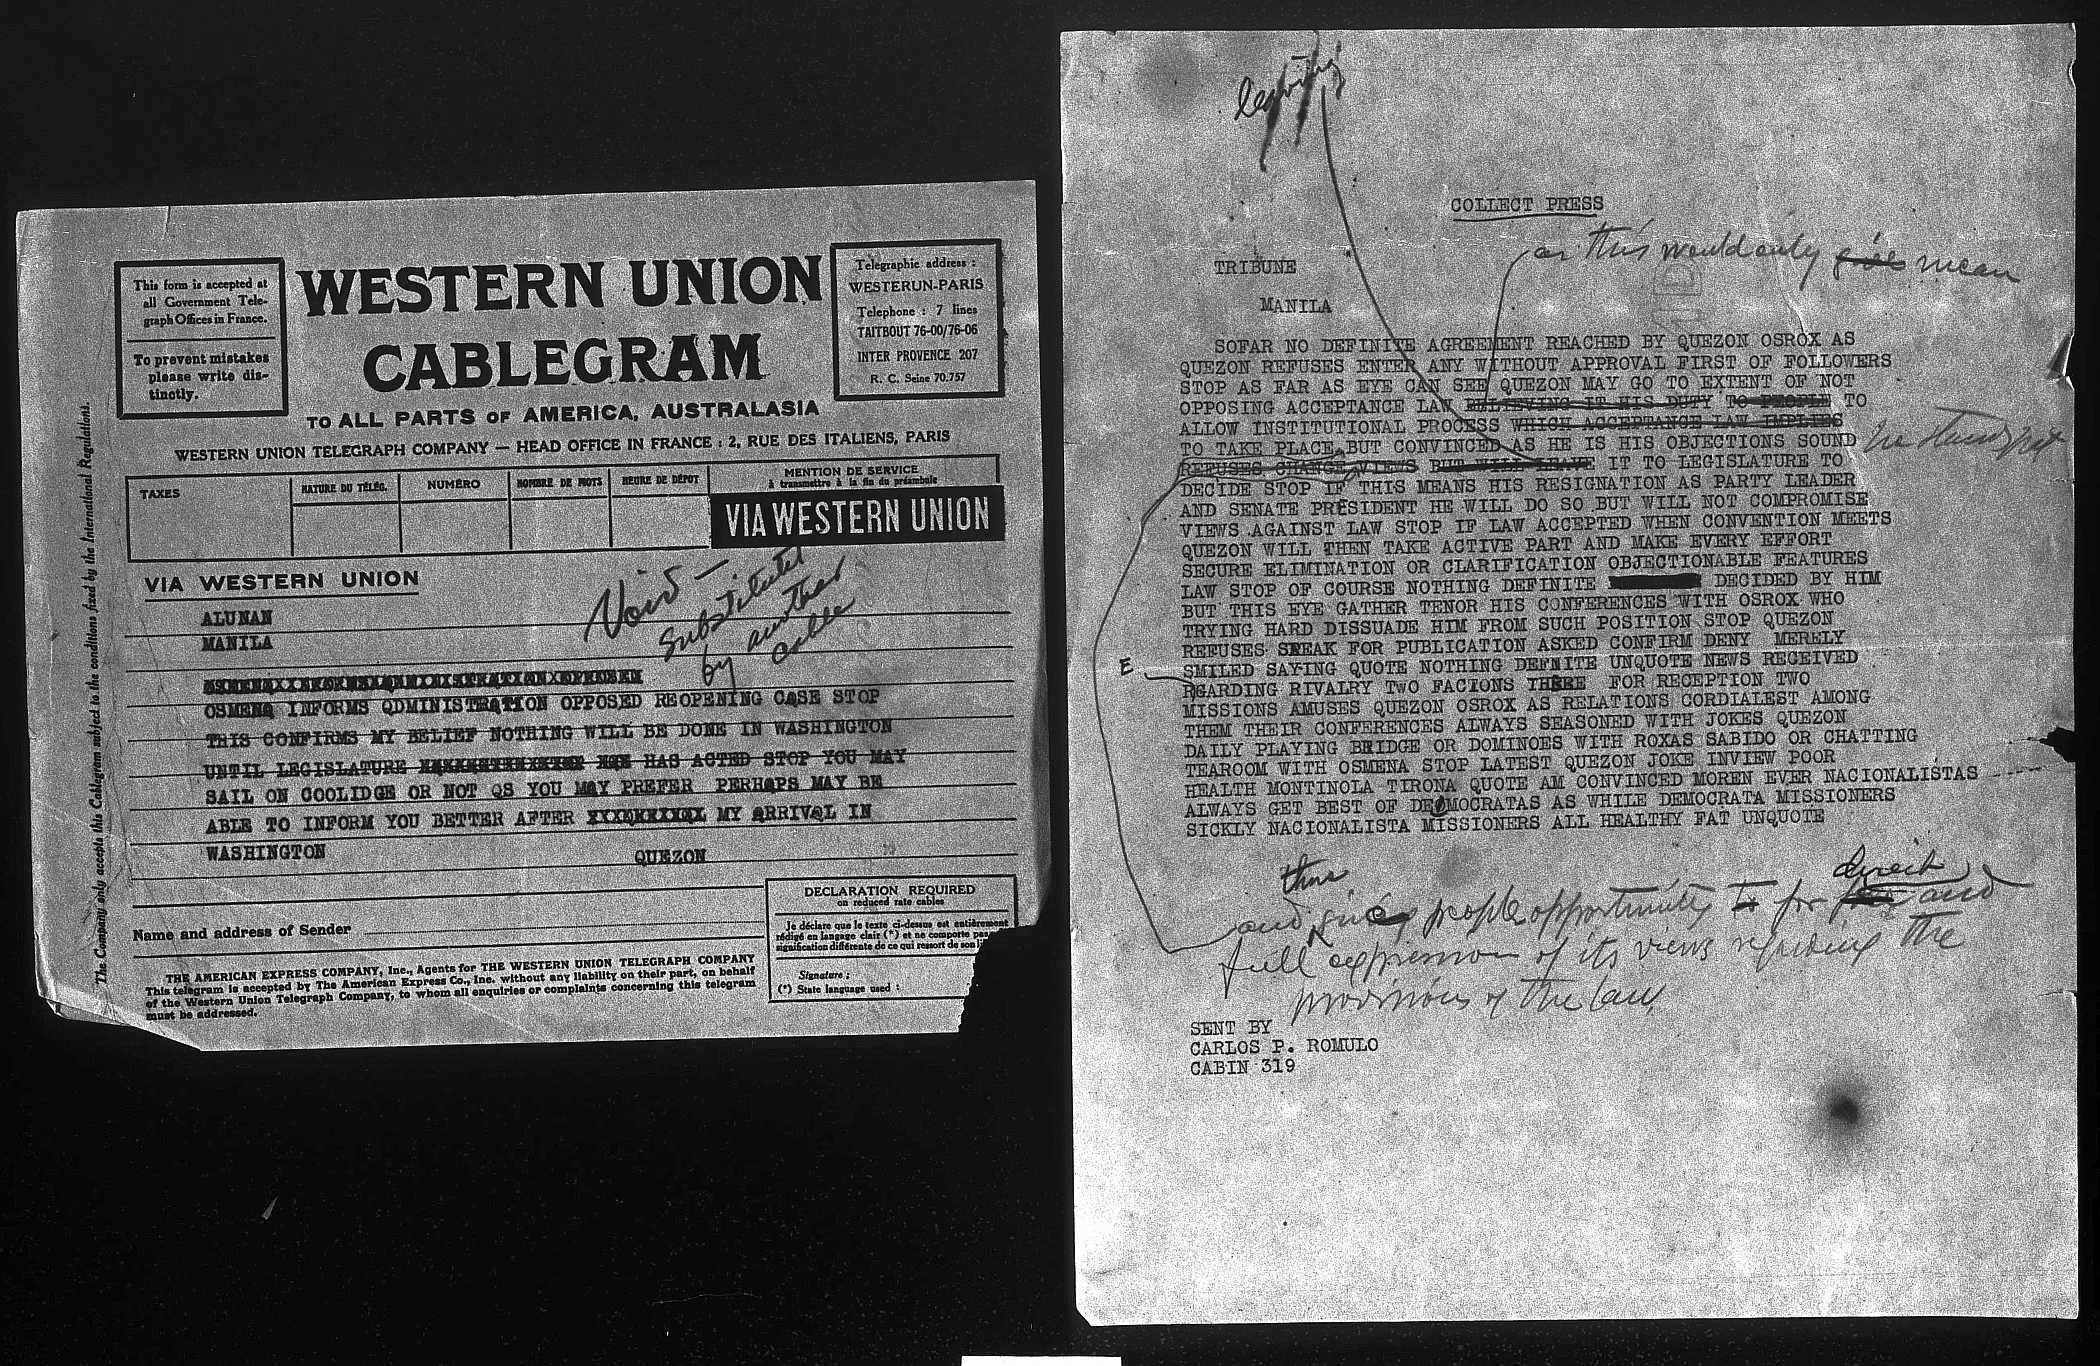 This form is accepted at
all Government Tele-
graph Offices in France.
To prevent mistakes
please write dis-
tinctly.
WESTERN UNION
CABLEGRAM
Telegraphic address :
WESTERUN-PARIS
Telephone : 7 lines
TAITBOUT 76-00/76-06
INTER PROVENCE 207
R. C. Seine 70.757
TO ALL PARTS OF AMERICA, AUSTRALASIA
WESTERN UNION TELEGRAPH COMPANY — HEAD OFFICE IN FRANCE : 2, RUE DES ITALIENS, PARIS
TAXES
NATURE DU TÉLÉG.
NUMÉRO
NOMBRE DE MOTS
HEURE DE DÉPOT
MENTION DE SERVICE
à transmettre à la fin du préambule
VIA WESTERN UNION
The Company only accepts this Cablegram subject to the conditions fixed by the International Regulations.
VIA WESTERN UNION
Void —
substituted
by another
cable
ALUNAN
MANILA
OSMENA INFORMS QDMINISTRATION OPPOSED REOPENING CQSE STOP
THIS CONFIRMS MY BELIEF NOTHING WILL BE DONE IN WASHINGTON
UNTIL LEGISLATURE HAS ACTED STOP YOU MAY
SAIL ON COOLIDGE OR NOT QS YOU MQY PREFER PERHQPS MAY BE
ABLE TO INFORM YOU BETTER AFTER MY QRRIVQL IN
WASHINGTON
QUEZON
Name and address of Sender
DECLARATION REQUIRED
on reduced rate cables
Je déclare que le texte ci-dessus est entièrement
rédigé en langage clair (*) et ne comporte pas
signification différente de ce qui ressort de son
Signature :
(*) State language used :
THE AMERICAN EXPRESS COMPANY, Inc., Agents for THE WESTERN UNION TELEGRAPH COMPANY
This telegram is accepted by The American Express Co., Inc. without any liability on their part, on behalf
of the Western Union Telegraph Company, to whom all enquiries or complaints concerning this telegram
must be addressed.
leaving
COLLECT PRESS
as this would only give mean
TRIBUNE
MANILA
SOFAR NO DEFINITE AGREEMENT REACHED BY QUEZON OSROX AS
QUEZON REFUSES ENTER ANY WITHOUT APPROVAL FIRST OF FOLLOWERS
STOP AS FAR AS EYE CAN SEE QUEZON MAY GO TO EXTENT OF NOT
OPPOSING ACCEPTANCE LAW BELIEVING IT HIS DUTY TO PEOPLE TO
ALLOW INSTITUTIONAL PROCESS WHICH ACCEPTANCE LAW IMPLIES
TO TAKE PLACE BUT CONVINCED AS HE IS HIS OBJECTIONS SOUND he
REFUSES CHANGE VIEWS BUT WILL LEAVE IT TO LEGISLATURE TO
DECIDE STOP IF THIS MEANS HIS RESIGNATION AS PARTY LEADER
AND SENATE PRESIDENT HE WILL DO SO BUT WILL NOT COMPROMISE
VIEWS AGAINST LAW STOP IF LAW ACCEPTED WHEN CONVENTION MEETS
QUEZON WILL THEN TAKE ACTIVE PART AND MAKE EVERY EFFORT
SECURE ELIMINATION OR CLARIFICATION OBJECTIONABLE FEATURES
LAW STOP OF COURSE NOTHING DEFINITE DECIDED BY HIM
BUT THIS EYE GATHER TENOR HIS CONFERENCES WITH OSROX WHO
TRYING HARD DISSUADE HIM FROM SUCH POSITION STOP QUEZON
REFUSES SPEAK FOR PUBLICATION ASKED CONFIRM DENY MERELY
E SMILED SAYING QUOTE NOTHING DEFNITE UNQUOTE NEWS RECEIVED
RGARDING RIVALRY TWO FACIONS THERE FOR RECEPTION TWO
MISSIONS AMUSES QUEZON OSROX AS RELATIONS CORDIALEST AMONG
THEM THEIR CONFERENCES ALWAYS SEASONED WITH JOKES QUEZON
DAILY PLAYING BRIDGE OR DOMINOES WITH ROXAS SABIDO OR CHATTING
TEAROOM WITH OSMENA STOP LATEST QUEZON JOKE INVIEW POOR
HEALTH MONTINOLA TIRONA QUOTE AM CONVINCED MOREN EVER NACIONALISTAS
ALWAYS GET BEST OF DEMOCRATAS AS WHILE DEMOCRATA MISSIONERS
SICKLY NACIONALISTA MISSIONERS ALL HEALTHY FAT UNQUOTE
thus direct
and giving people opportunity to for and
full expression of its views regarding the
provisions of the law,
SENT BY
CARLOS P. ROMULO
CABIN 319